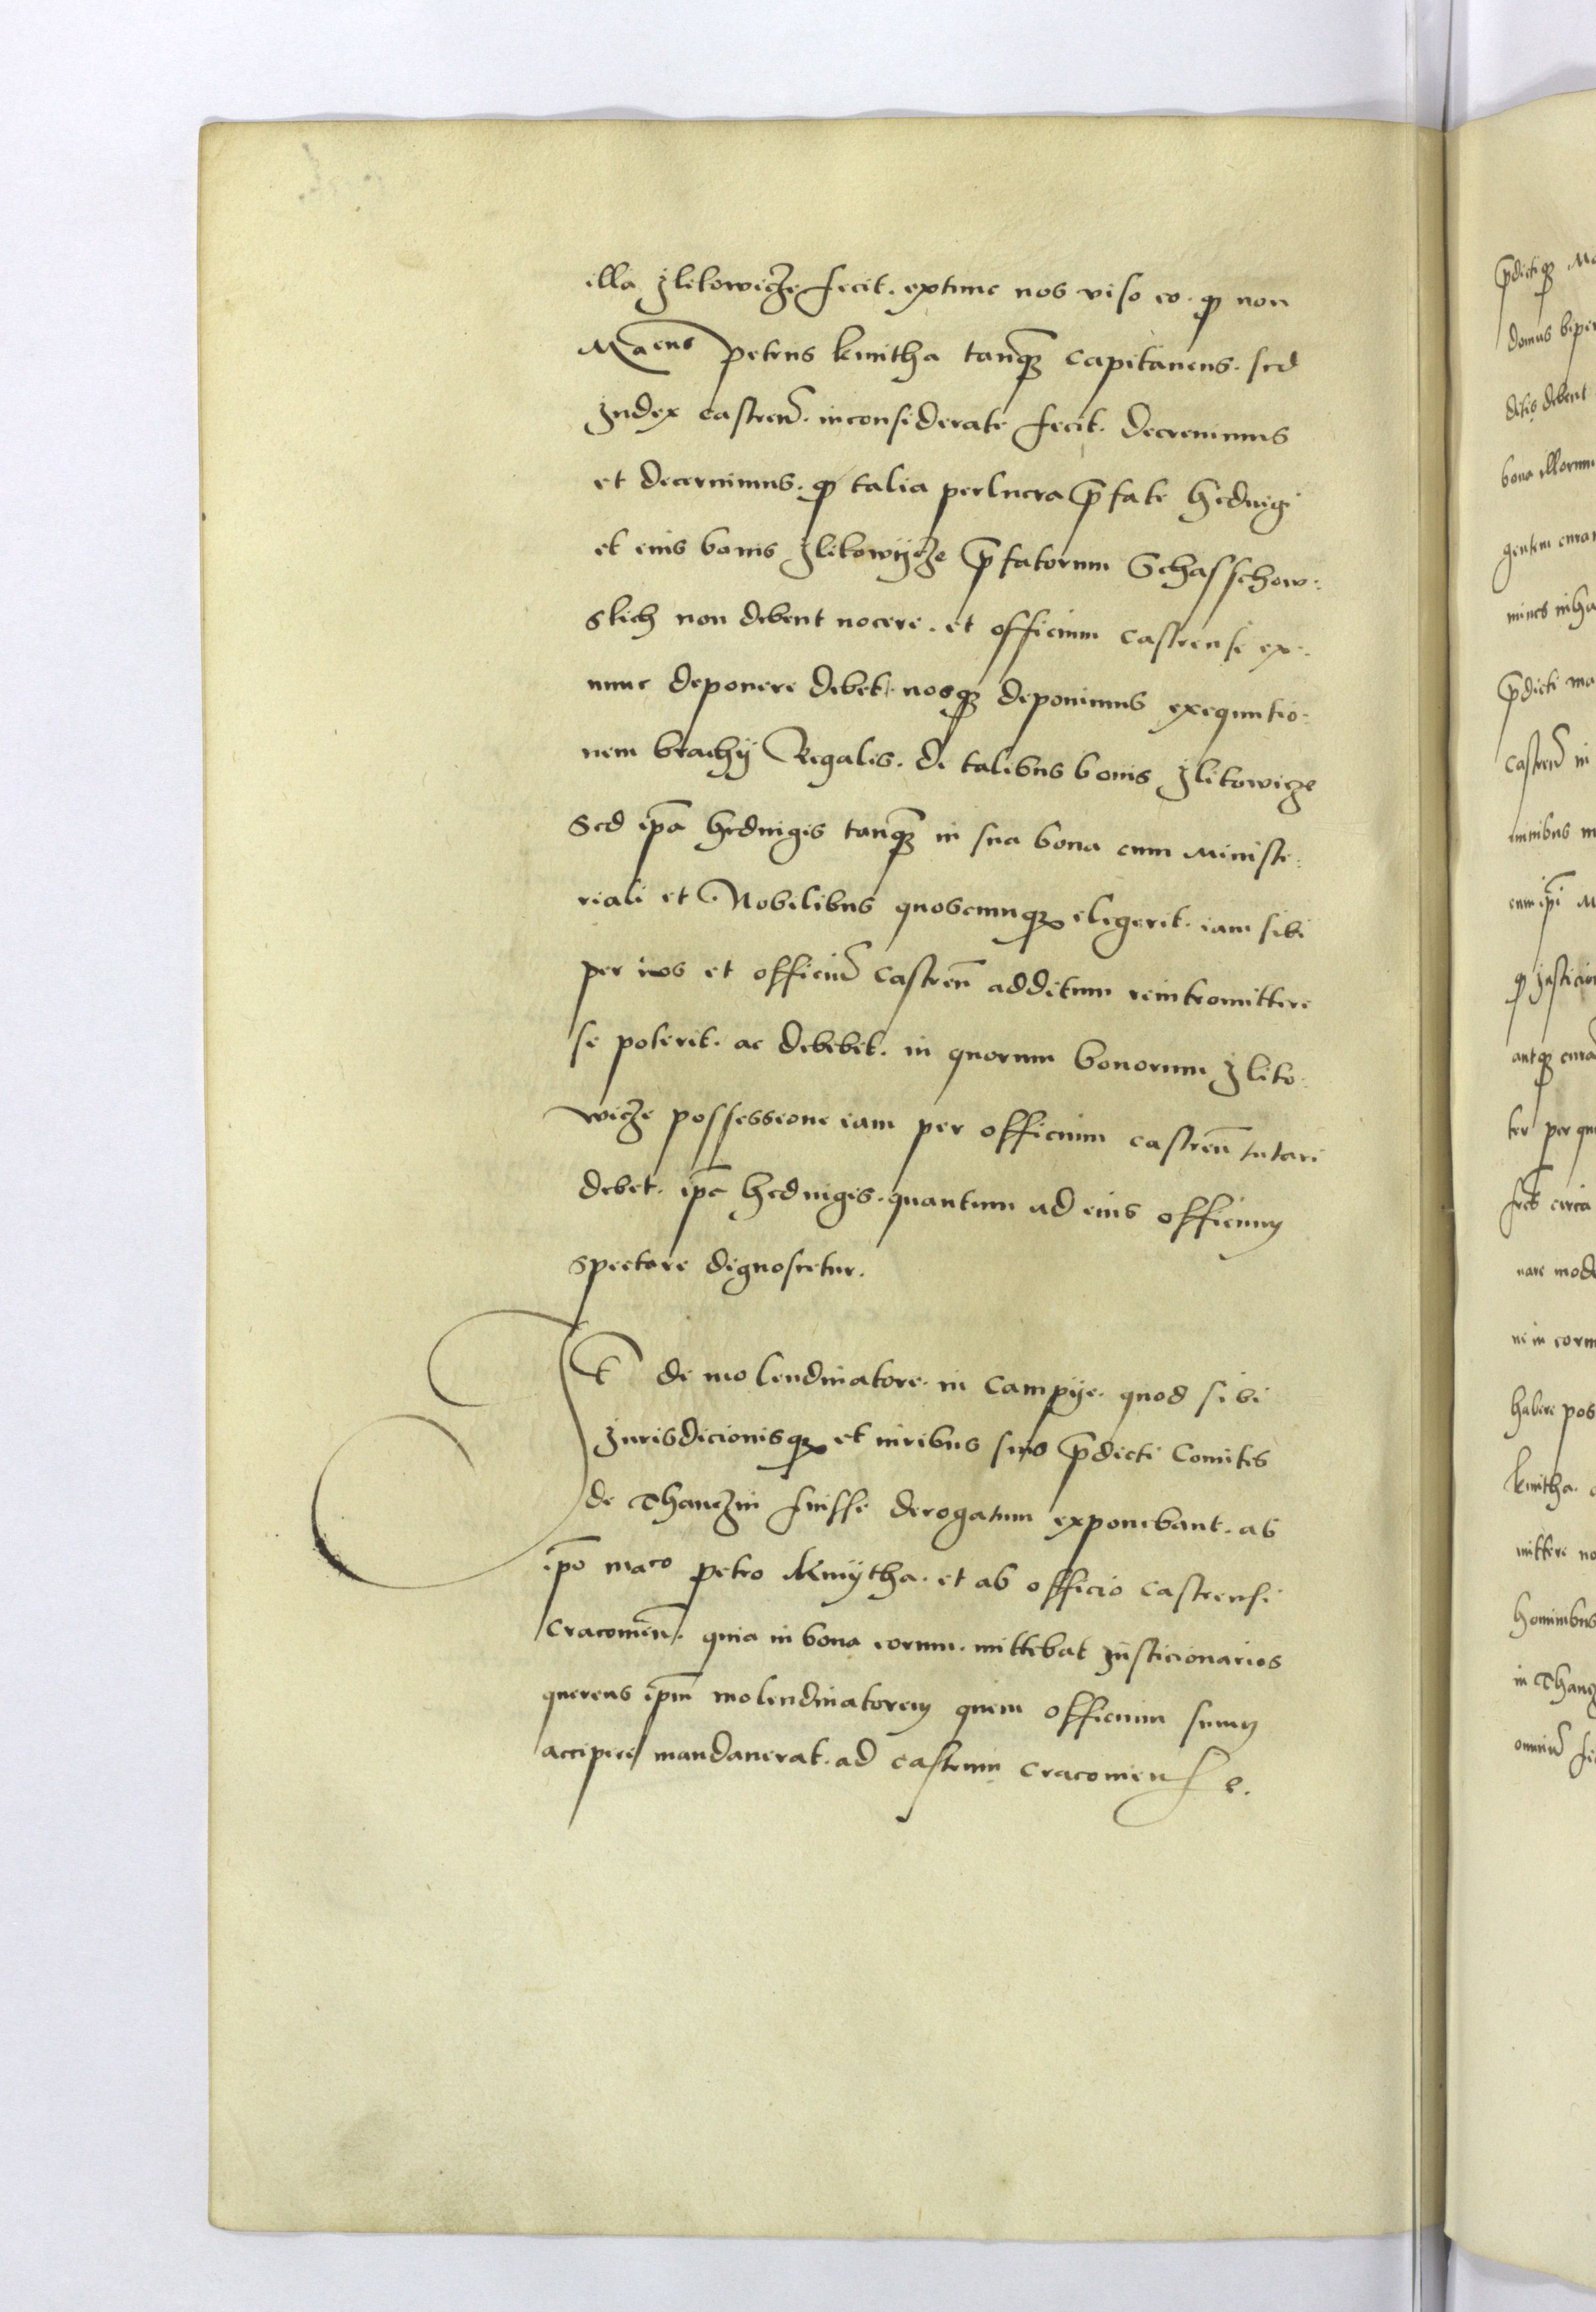 illa Zlikowicze fecit. extunc nos viso eo. ꝙ non
Ma͡cus Petrus kmitha tanqȝ Capitaneus. sed
Iudex castreñ. inconsiderate fecit. decreuimus
et decernimus. ꝙ talia perlucra p̄fate hedwigi
et eius bonis Zlikowycze p̄fatorum Schasschow:
skich non debent nocere. et officium castrense ex:
nunc deponere debet. nosqȝ deponimus exequutio:
nem brachÿ Regalis. de talibus bonis Zlikowicze
Sed ip̄a hedwigis tanqȝ in sua bona cum Ministe:
riali et Nobilibus quoscumqȝ elegerit. iam sibi
per nos et officiū Castreñ additum reintromittere
se poterit. ac debebit. in quorum bonorum Zliko:
wicze possessione iam per officium castreñ tutari
debet. ip̄a hedwigis. quantum ad eius officium
spectare dignoscetur.
It̄ de molendinatore. in Campye. quod sibi
Iurisdicionisqȝ et iuribus suis p̄dicti Comites
de Thanczin fuisse derogatum exponebant. ab
ip̄o maco petro Kmÿtha. et ab officio castrensi
Cracouieñ. quia in bona eorum. mittebat Iusticionarios
querens ip̄m molendinatorem quem officium suum
accipere mandauerat. ad castrum Cracouiense.
p̄dictiqȝ
domus
dictis debent
bona illorum
p̄dicti
castreñ in
habere
kmitha.
mittere
hominibus